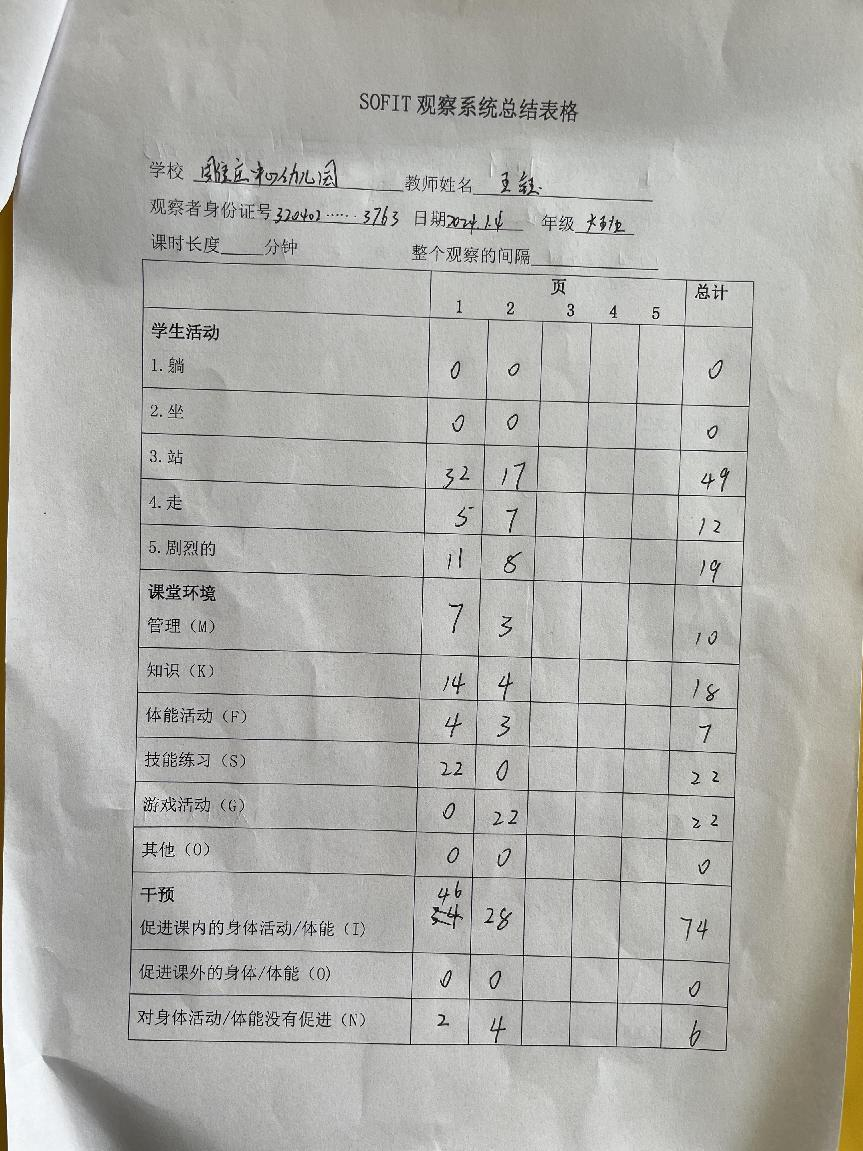 SOFIT 观察系统总结表格
学校 幼儿园 教师姓名 王钰
观察者身份证号 320402……3763 日期 2024.1.4 年级
课时长度 分钟 整个观察的间隔
页 总计
1 2 3 4 5
学生活动
1.躺 0 0 0
2.坐 0 0 0
3.站 32 17 49
4.走 5 7 12
5.剧烈的 11 8 19
课堂环境
管理（M） 7 3 10
知识（K） 14 4 18
体能活动（F） 4 3 7
技能练习（S） 22 0 22
游戏活动（G） 0 22 22
其他（O） 0 0 0
干预 46
促进课内的身体活动/体能（I） 34 28 74
促进课外的身体/体能（O） 0 0 0
对身体活动/体能没有促进（N） 2 4 6